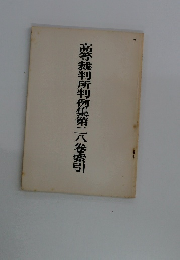 高等裁判所判例集第二八巻索引